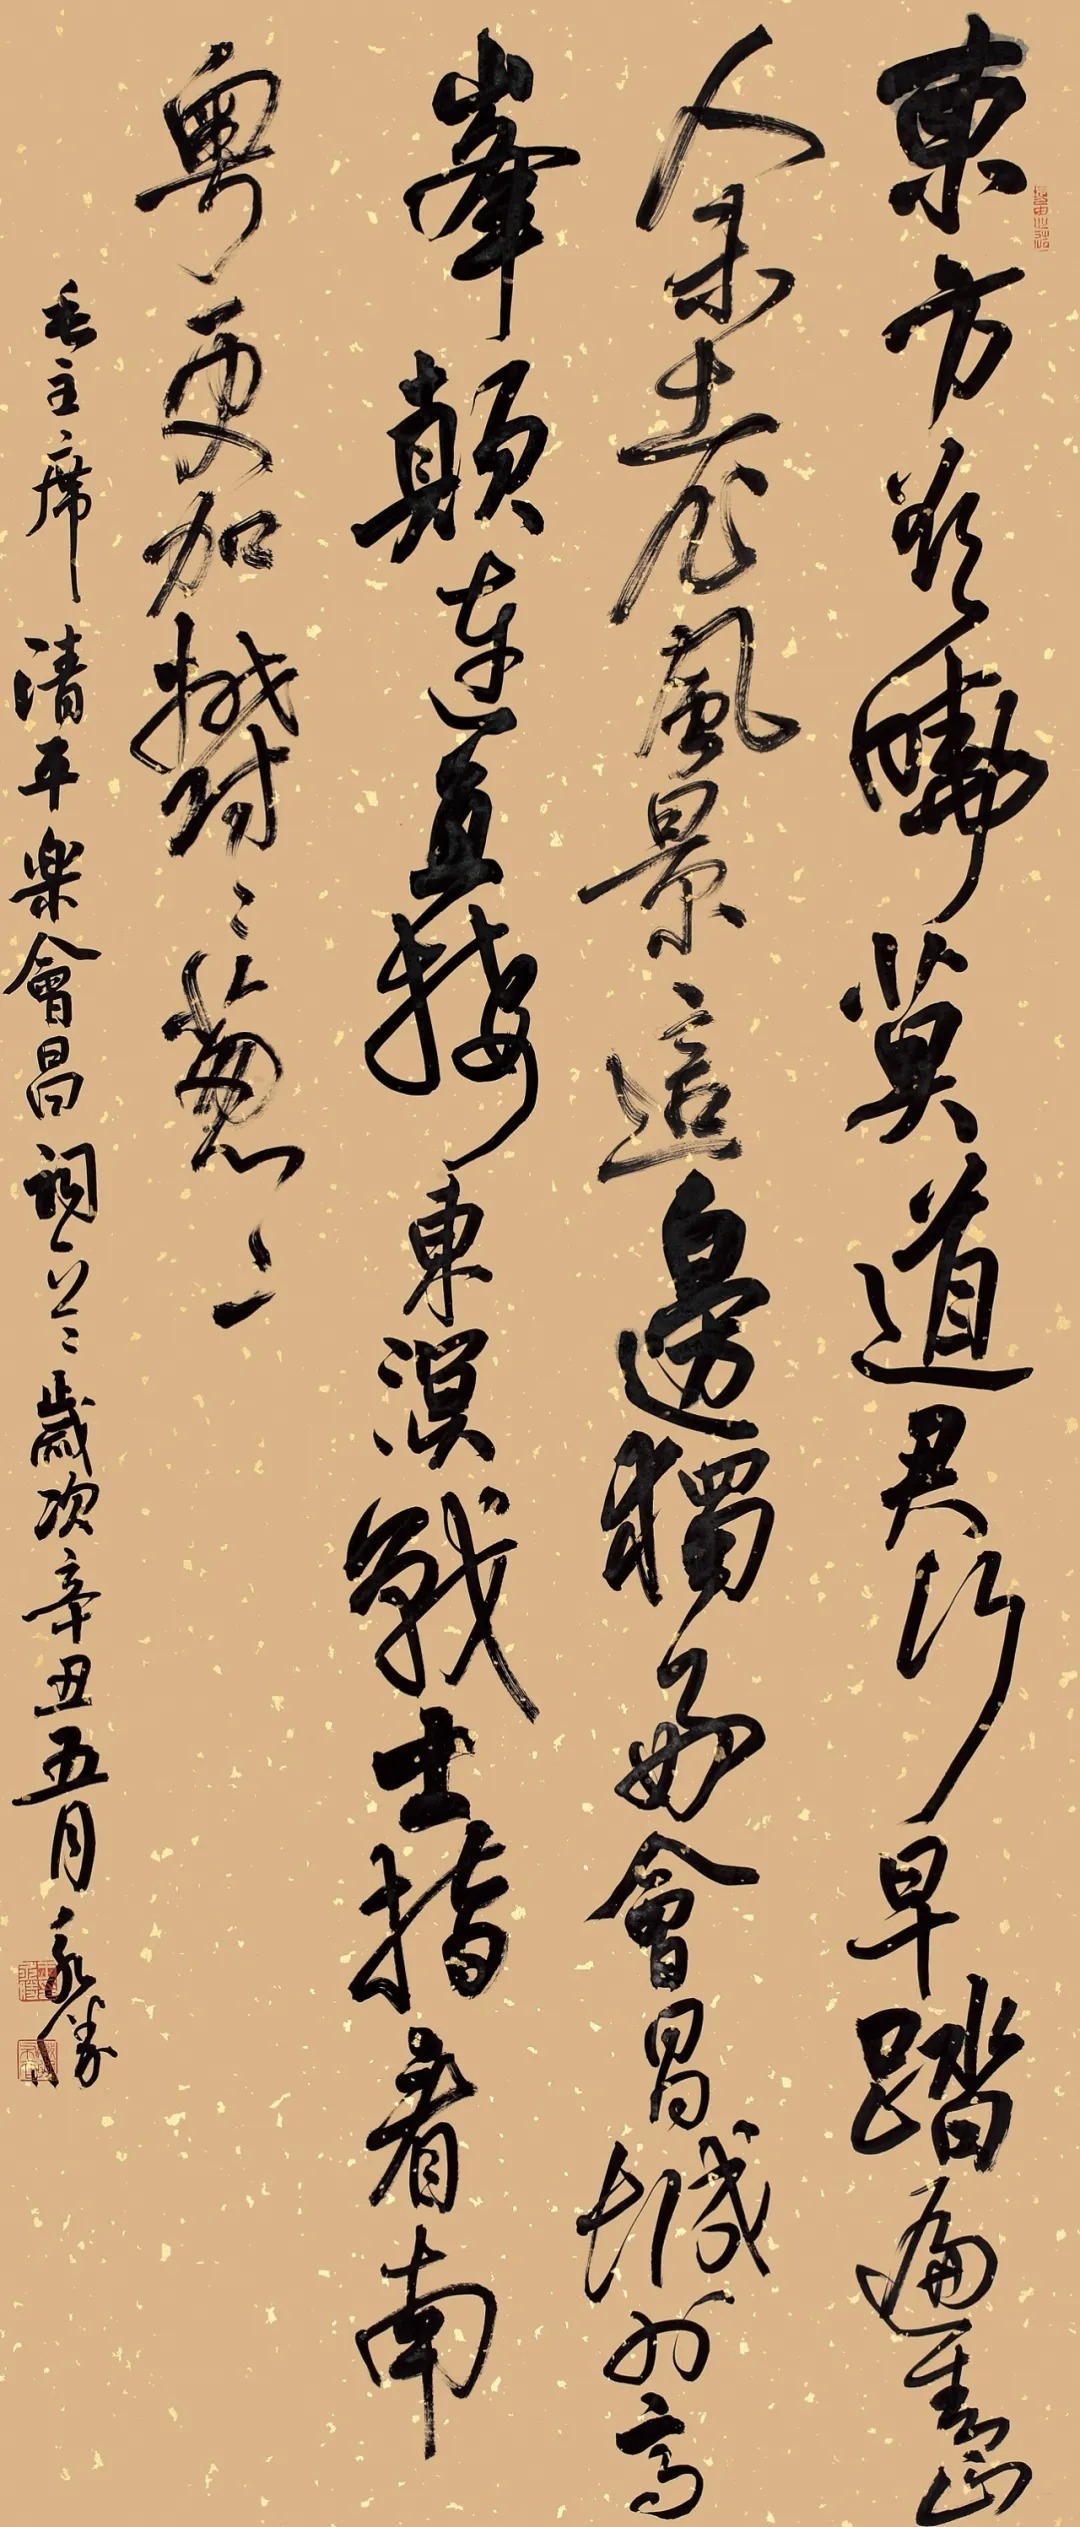 東方欲曉莫道君行早踏遍青山
人未老風景這邊獨好會昌城外高
峯顛連直接東溟戰士指看南
粵更加欝〻葱〻
毛主席清平楽會昌詞一首歲次辛丑五月永勝